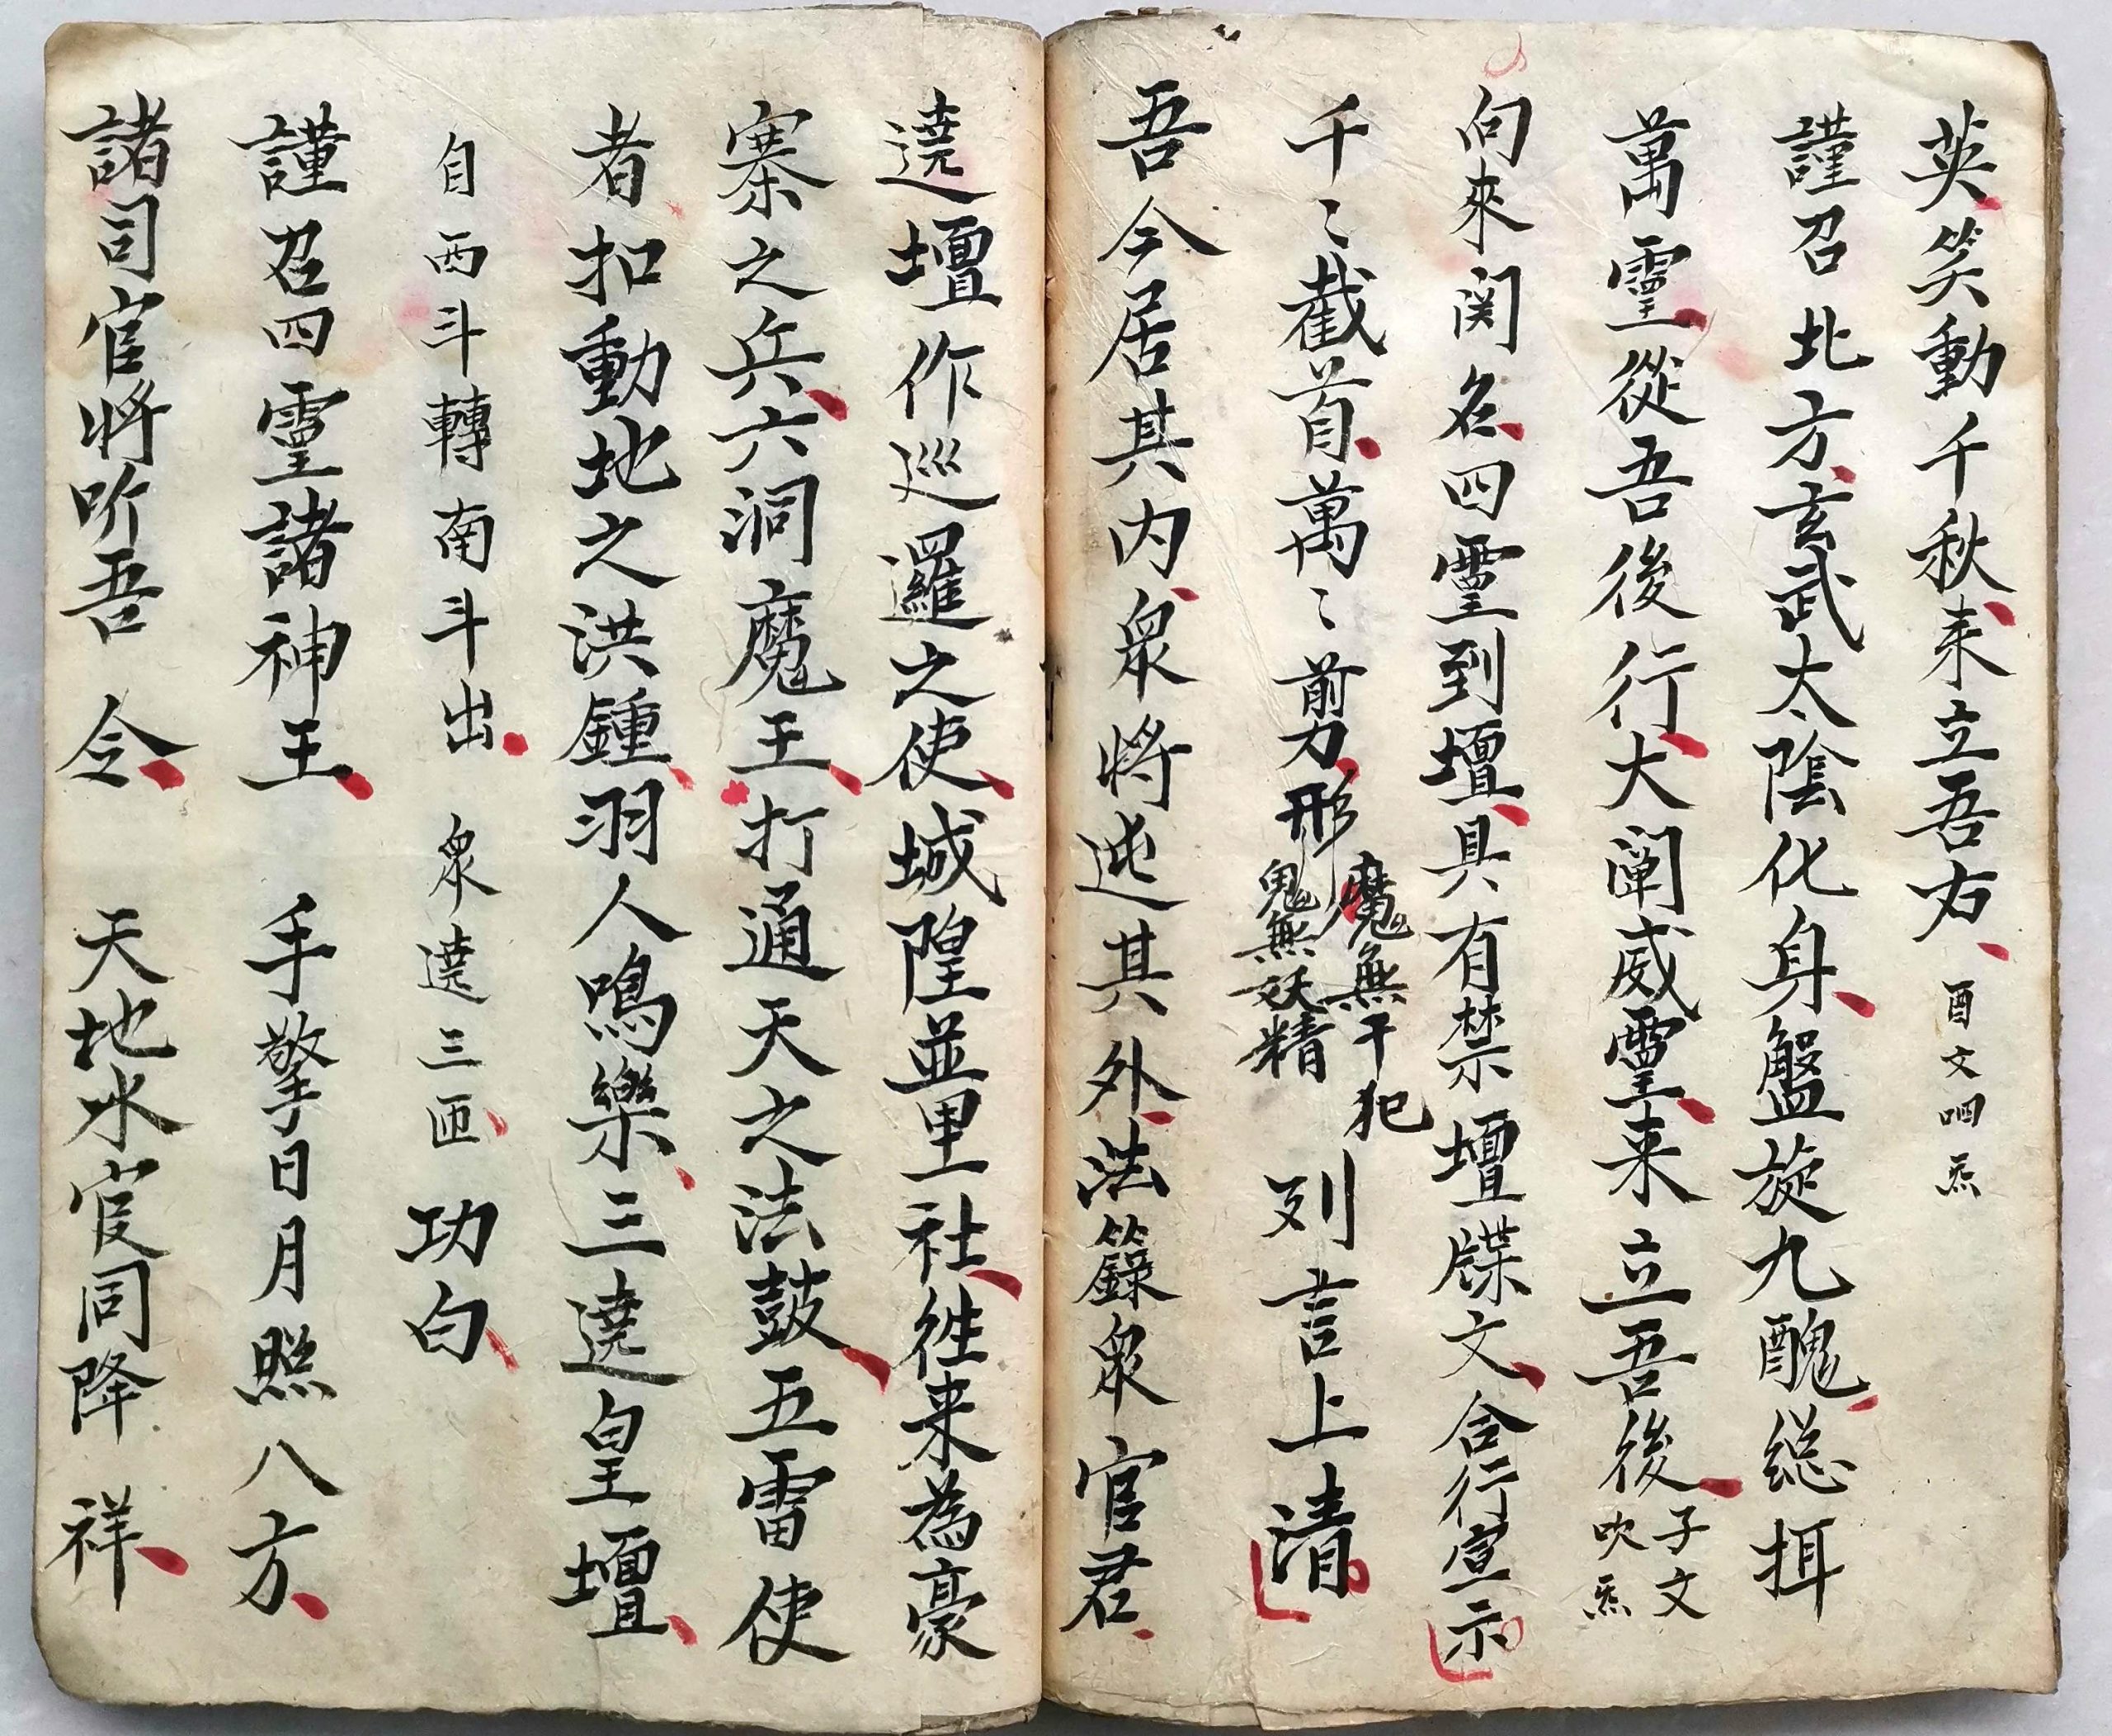 英笑動千秋来立吾右 酉文呬炁
謹召北方玄武太陰化身盤旋九醜総
萬靈從吾後行大闡威靈来立吾後 子文
吹炁
向來関名四靈到壇具有禁壇牒文合行宣示
千〻截首萬〻剪形 魔無干犯
鬼無妖精 列言上清
吾今居其内眾將遶其外法籙眾官君
遶壇作巡邏之使城隍並里社徃来為豪
寨之兵六洞魔王打通天之法鼓五雷使
者扣動地之洪鍾羽人鳴樂三遶皇壇
自西斗轉南斗出 眾遶三匝 功白
謹召四靈諸神王 手擎日月照八方
諸司官将听吾令 天地水官同降祥